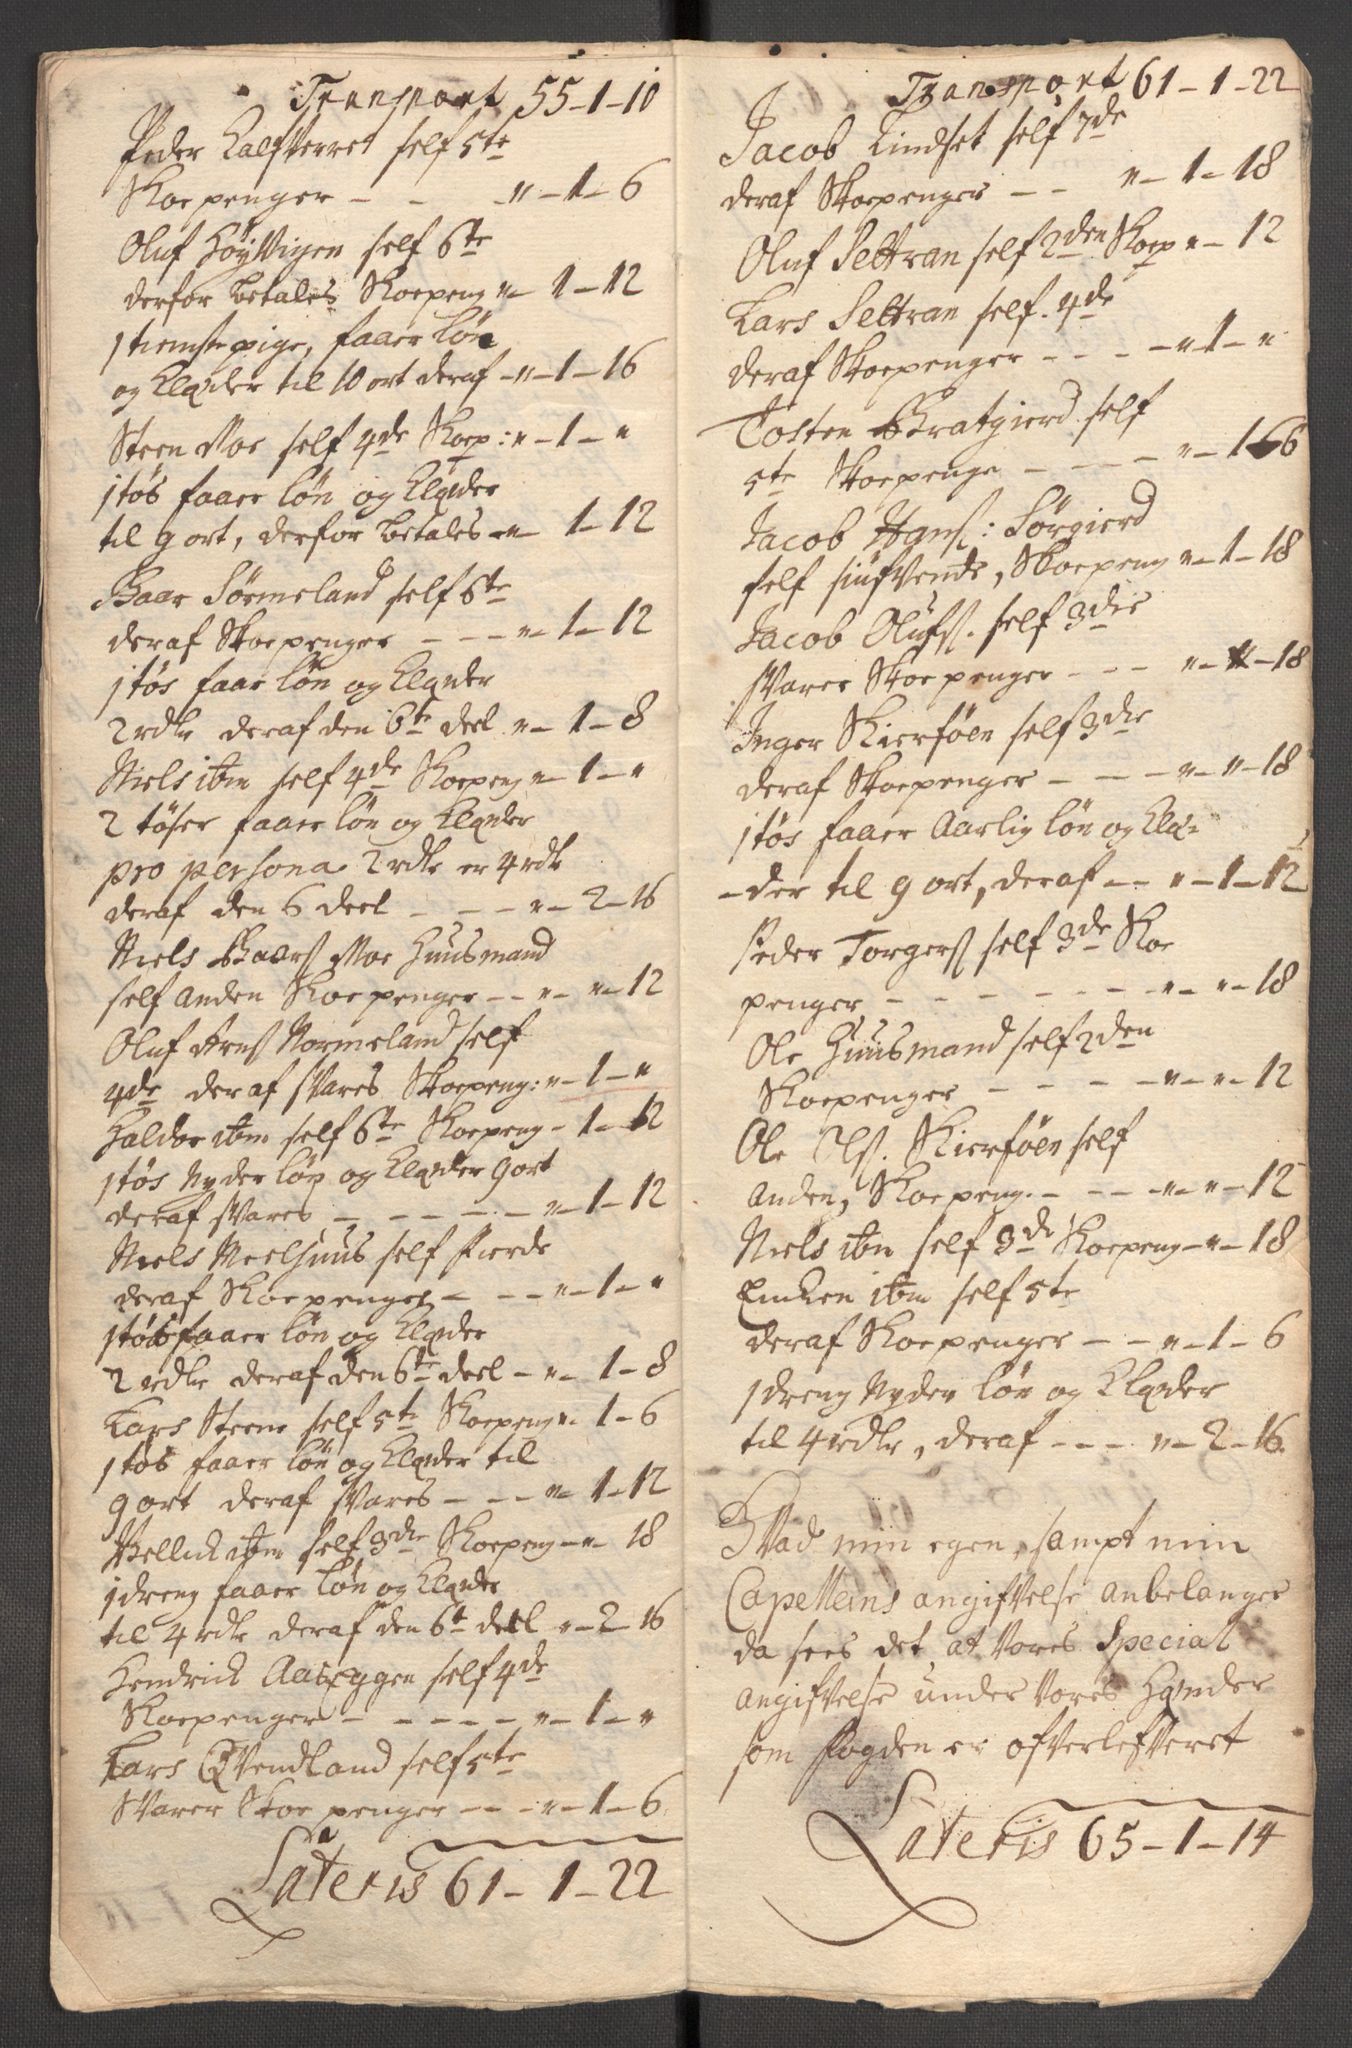 Transport 55-1-10
Peder Kalfverret self 5te
Skoepenger - - -"-1-6
Oluf Høyvigen self 6te
derfor betales Skoepeng "- 1-12
1 tienste pige, faaer løn
og Klæder til 10 ort deraf -"-1-16
Steen Moe self 4de Skoep: "-1-"
1 tøs faaer løn og Klæder
til 9 ort, derfor betales -"- 1-12
Baar Sørmeland self 6te
deraf Skoepenger - - - "-1-12
1 tøs faar løn og Klæder
2 rdlr deraf den 6te deel "-1-8
Niels ibm self 4de Skoepeng "-1-"
2 tøser faaer løn og Klæder
pro persona 2 rdlr er 4 rdlr
deraf den 6 deel - - - "-2-16
Niels Baars Moe Huusmand
self anden Skoepenger - - "- "-12
Oluf Arns Normeland self
4de deraf svares Skoepeng: "-1-"
Haldor ibm self 6te Skoepeng - 1-12
1 tøs Nyder løn og Klæder 9 ort
deraf svares - - - - - "-1-12
Niels Meelhuus self fierde
deraf Skoepenger - - - "-1-"
1 tøs faaer løn og Klæder
2 rdlr deraf den 6te deel - "- 1-8
Lars Steene self 5te Skoepeng "- 1-6
1 tøs faaer løn og Klæder til
9 ort deraf svares - - - "- 1-12
Bellick ibm self 3die Skoepeng -"- 18
1 dreng faaer løn og Klæder
til 4 rdlr deraf den 6te deel "-2-16
Hendrick Aaseggen self 4de
Skoepenger - - - - - "-1-"
Lars Qvendland self 5te
Svarer Skoepenger - - - "-1-6
Lateris 61-1-22
Transport 61-1-22
Jacob Lindset self 7de
deraf Skoepenger - - "-1-18
Oluf Settran self 2den Skoep "-12
Lars Settran self. 4de
deraf Skoepenger - - - -"-1-"
Tosten Bratgierd self
5te Skoepenge - - - - "-1-6
Jacob Hans: Sørgierd
self siufvende, Skoepeng "-1-18
Jacob Olufs. self 3die
svarer Skoepenger - - - "-"-18
Inger Kierføen self 3die
deraf Skoepenger - - - -"-"-18
1 tøs faaer Aarlig løn og Klæ-
-der til 9 ort, deraf - - "-1-12
Peder Torgers self 3de Skoe
penger - - - - - - -"- "-18
Ole Huusmand self 2den
Skoepenger - - - - -"-"-12
Ole Ols. Kierføen self
anden, Skoepeng. - - - -"-"-12
Niels ibm self 3de Skoepeng -"-18
Encken ibm self 5te
deraf Skoepenger - - -"-1-6
1 dreng Nyder løn og Klæder
til 4 rdlr, deraf - - - "-2-16.
Hvad min egen, sampt min
Capelleins angifvelse anbelanger
da sees det at Vores Special
angifvelse under Vores Hænder
som fogden er ofverlefveret
Lateris 65-1-14